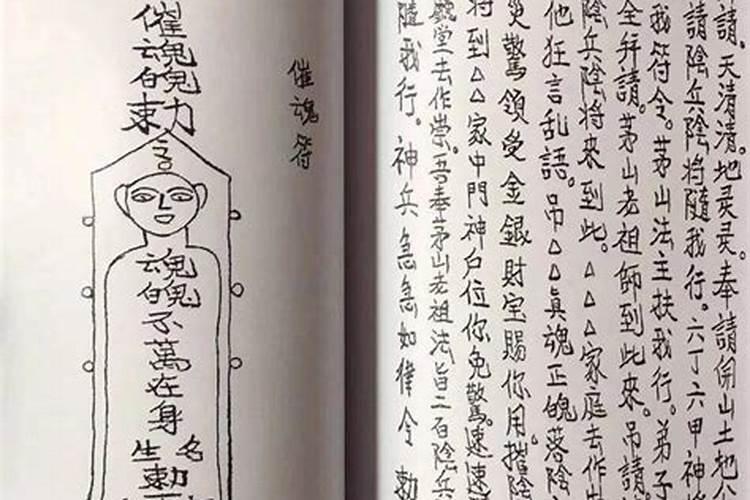 請。天清清。地灵灵。奉請開山土地
請陰兵陰將隨我行。六丁六甲神
我符令。茅山法主扶我行。弟子
全拜請。茅山老祖師到此來。吊請
陰兵陰將來到此。△△△家庭去作
他狂言乱語。吊△△真魂正魄落陰
災驚領受金銀財宝賜你用。摧陰
將到△△家中門神户位你免驚。速速
堂去作崇。吾奉茅山老祖法旨二百陰兵
隨我行。神兵急急如律令 勅
催魂符
催魂魄勅
魂魄不萬在身
名生
勅